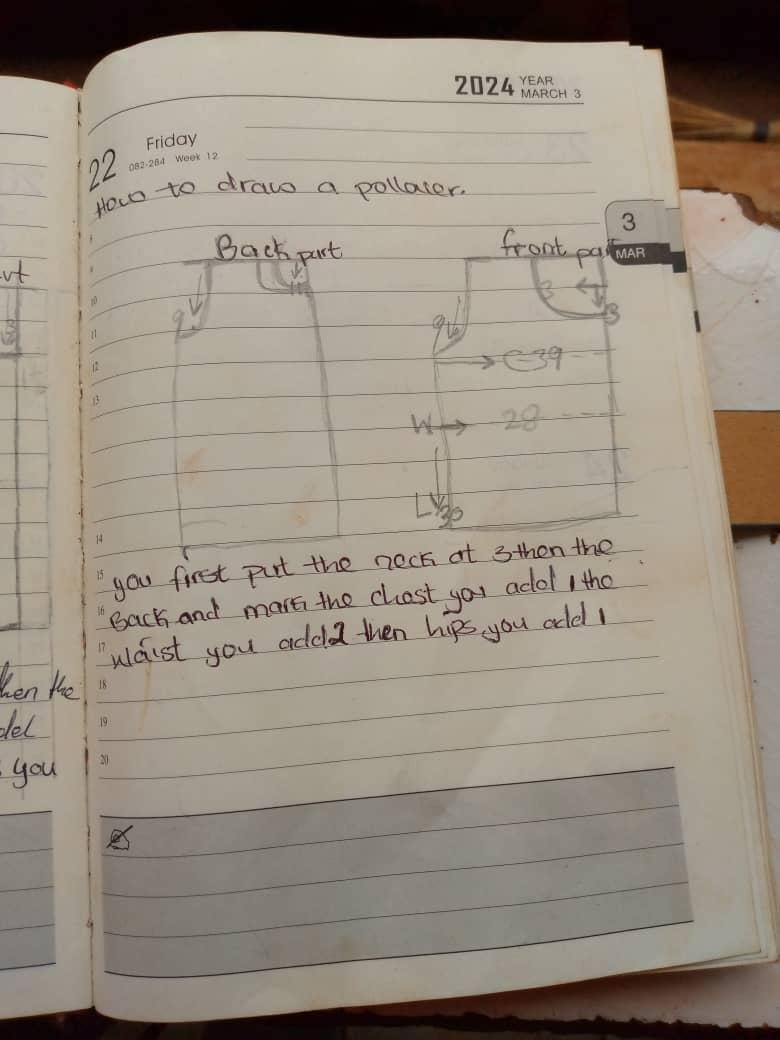 2024 YEAR
MARCH 3
22 Friday
082-284 Week 12
How to draw a pollacer.
3
MAR
Back part
front pa
9
9
3
3
C 39
W 28
L 30
9
10
11
12
13
14
15 you first put the neck at 3 then the
16 Back and mark the chest you add 1 the
17 waist you add 2 then hips you add 1
18
19
20
hen the
you